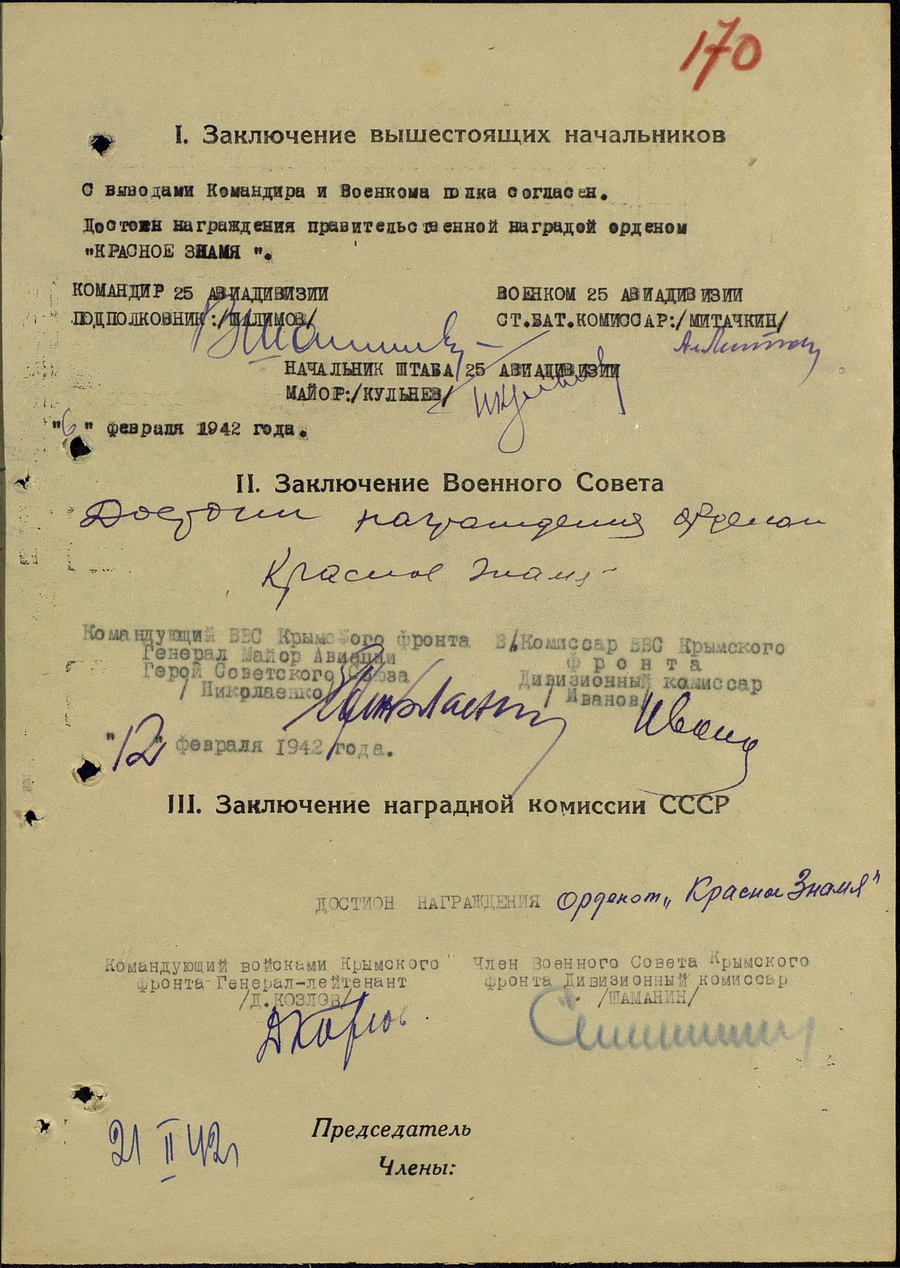 170
I. Заключение вышестоящих начальников
С выводами Командира и Военкома полка согласен.
Достоин награждения правительственной наградой орденом
"КРАСНОЕ ЗНАМЯ ".
КОМАНДИР 25 АВИАДИВИЗИИ ВОЕНКОМ 25 АВИАДИВИЗИИ
ПОДПОЛКОВНИК:/ШАЛИМОВ/ СТ.БАТ.КОМИССАР:/МИТАЧКИН/
НАЧАЛЬНИК ШТАБА 25 АВИАДИВИЗИИ
МАЙОР:/КУЛЬНЕВ/
"6" февраля 1942 года.
II. Заключение Военного Совета
Достоин награждения орденом
Красное Знамя
Командующий ВВС Крымского фронта В/Комиссар ВВС Крымского
Генерал Майор Авиации фронта
Герой Советского Союза Дивизионный комиссар
/ Николаенко / Иванов/
"12" февраля 1942 года.
III. Заключение наградной комиссии СССР
ДОСТИОН НАГРАЖДЕНИЯ Орденом „Красное Знамя"
Командующий войсками Крымского Член Военного Совета Крымского
фронта Генерал-лейтенант фронта Дивизионный комиссар
/Д.КОЗЛОВ/ /ШАМАНИН/
21 II 42г
Председатель
Члены: